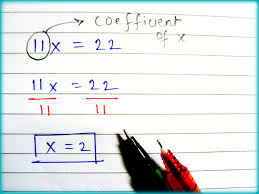 coefficient
of x
11x = 22
11x = 22
11 11
x = 2